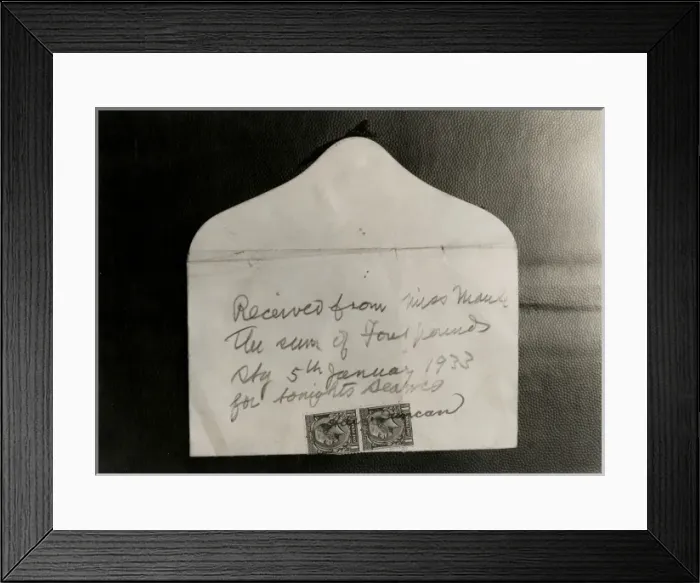 Received from Miss Maule
The sum of Four pounds
Stg 5th January 1933
for tonights Seance
Duncan